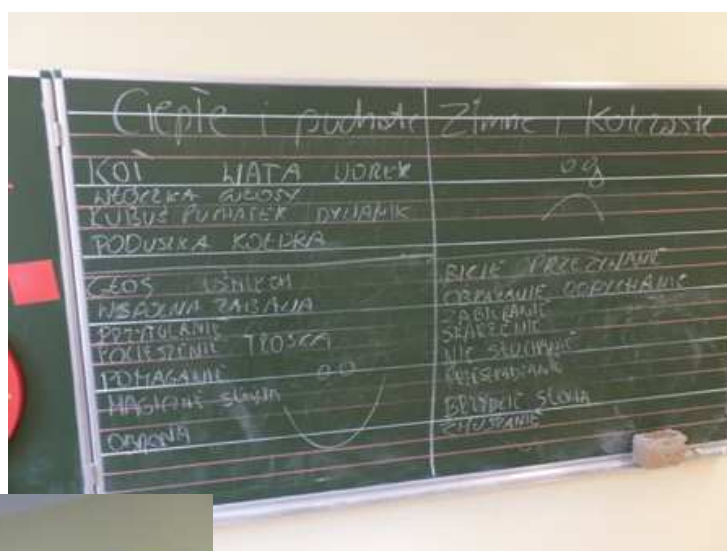 Ciepłe i puchate
KOC WATA WOREK
WŁÓCZKA WŁOSY
KUBUŚ PUCHATEK DYWANIK
PODUSZKA KOŁDRA
GŁOS UŚMIECH
WSPÓLNA ZABAWA
PRZYTULANIE
POCIESZENIE TROSKA
POMAGANIE
MAGICZNE SŁOWA
OBRONA
Zimne i Kolczaste
BICIE PRZEZYWANIE
OBRAŻANIE ODPYCHANIE
ZABIERANIE
SKARŻENIE
NIE SŁUCHANIE
BRZYDKIE SŁOWA
ZMUSZANIE